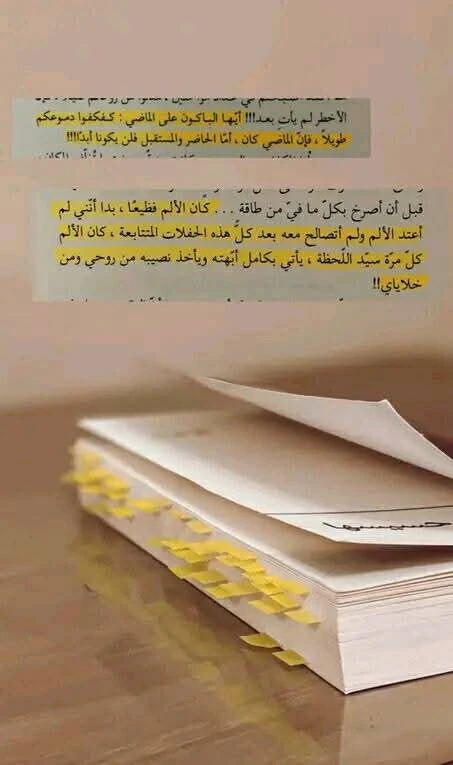 الأخطر لم يأت بعد!!! أيّها الباكون على الماضي : كفكفوا دموعكم
طويلاً ، فإنّ الماضي كان ، أمّا الحاضر والمستقبل فلن يكونا أبدًا!!!!
قبل أن أصرخ بكلّ ما فيّ من طاقة ... كان الألم فظيعًا ، بدا أنّني لم
أعتد الألم ولم أتصالح معه بعد كلّ هذه الحفلات المتتابعة ، كان الألم
كلّ مرّة سيّد اللّحظة ، يأتي بكامل أبّهته ويأخذ نصيبه من روحي ومن
خلاياي!!